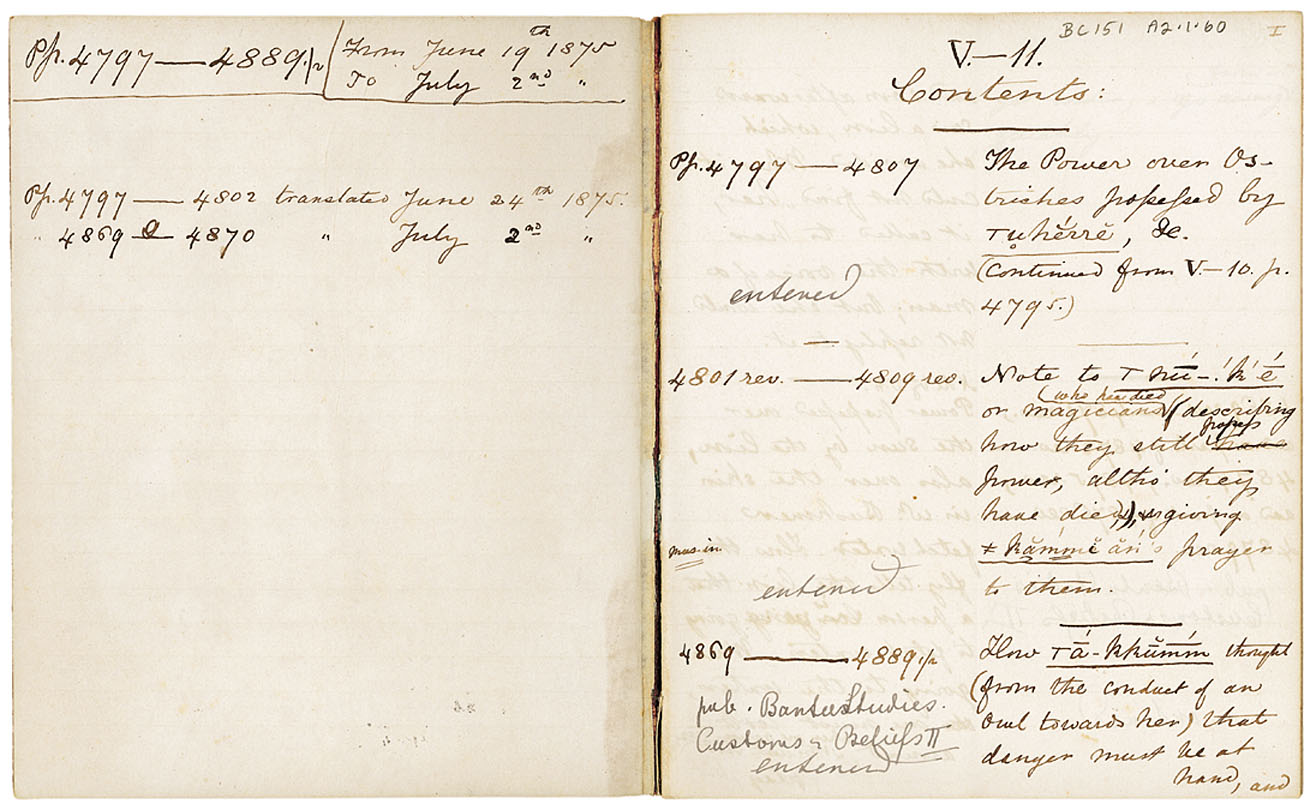 Pp. 4797 — 4889.½ From June 19th 1875
To July 2nd "
Pp. 4797 — 4802 translated June 24th 1875.
" 4869 & 4870 " July 2nd "
BC151 A2.1.60 I
V.—11.
Contents:
Pp. 4797 — 4807 The Power over Os-
triches possessed by
, &c.
(Continued from V.—10. p.
4795.)
entered
4801 rev. — 4809 rev. Note to
(who had died)
or magicians (describing
how they still possess
power, altho' they
have died), giving
prayer
to them.
mus. in.
entered
4869 — 4889½ How thought
(from the conduct of an
Owl towards her) that
danger must be at
hand, and
pub. Bantu Studies.
Customs & Beliefs II
entered